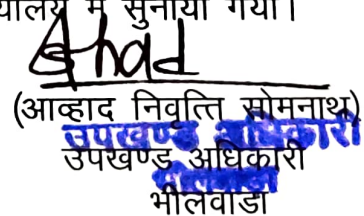 यालय में सुनाया गया।
Ahad
(आव्हाद निवृत्ति सोमनाथ)
उपखण्ड अधिकारी
उपखण्ड अधिकारी
भीलवाडा
भीलवाडा